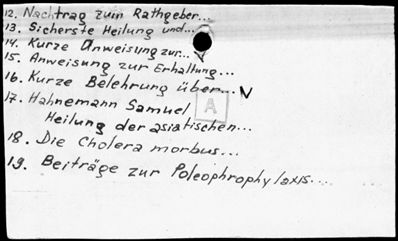 12. Nachtrag zum Rathgeber...
13. Sicherste Heilung und...
14. Kurze Anweisung zur... V
15. Anweisung zur Erhaltung...
16. Kurze Belehrung über... V
17. Hahnemann Samuel
A
Heilung der asiatischen...
18. Die Cholera morbus...
19. Beiträge zur Poleophrophylaxis...